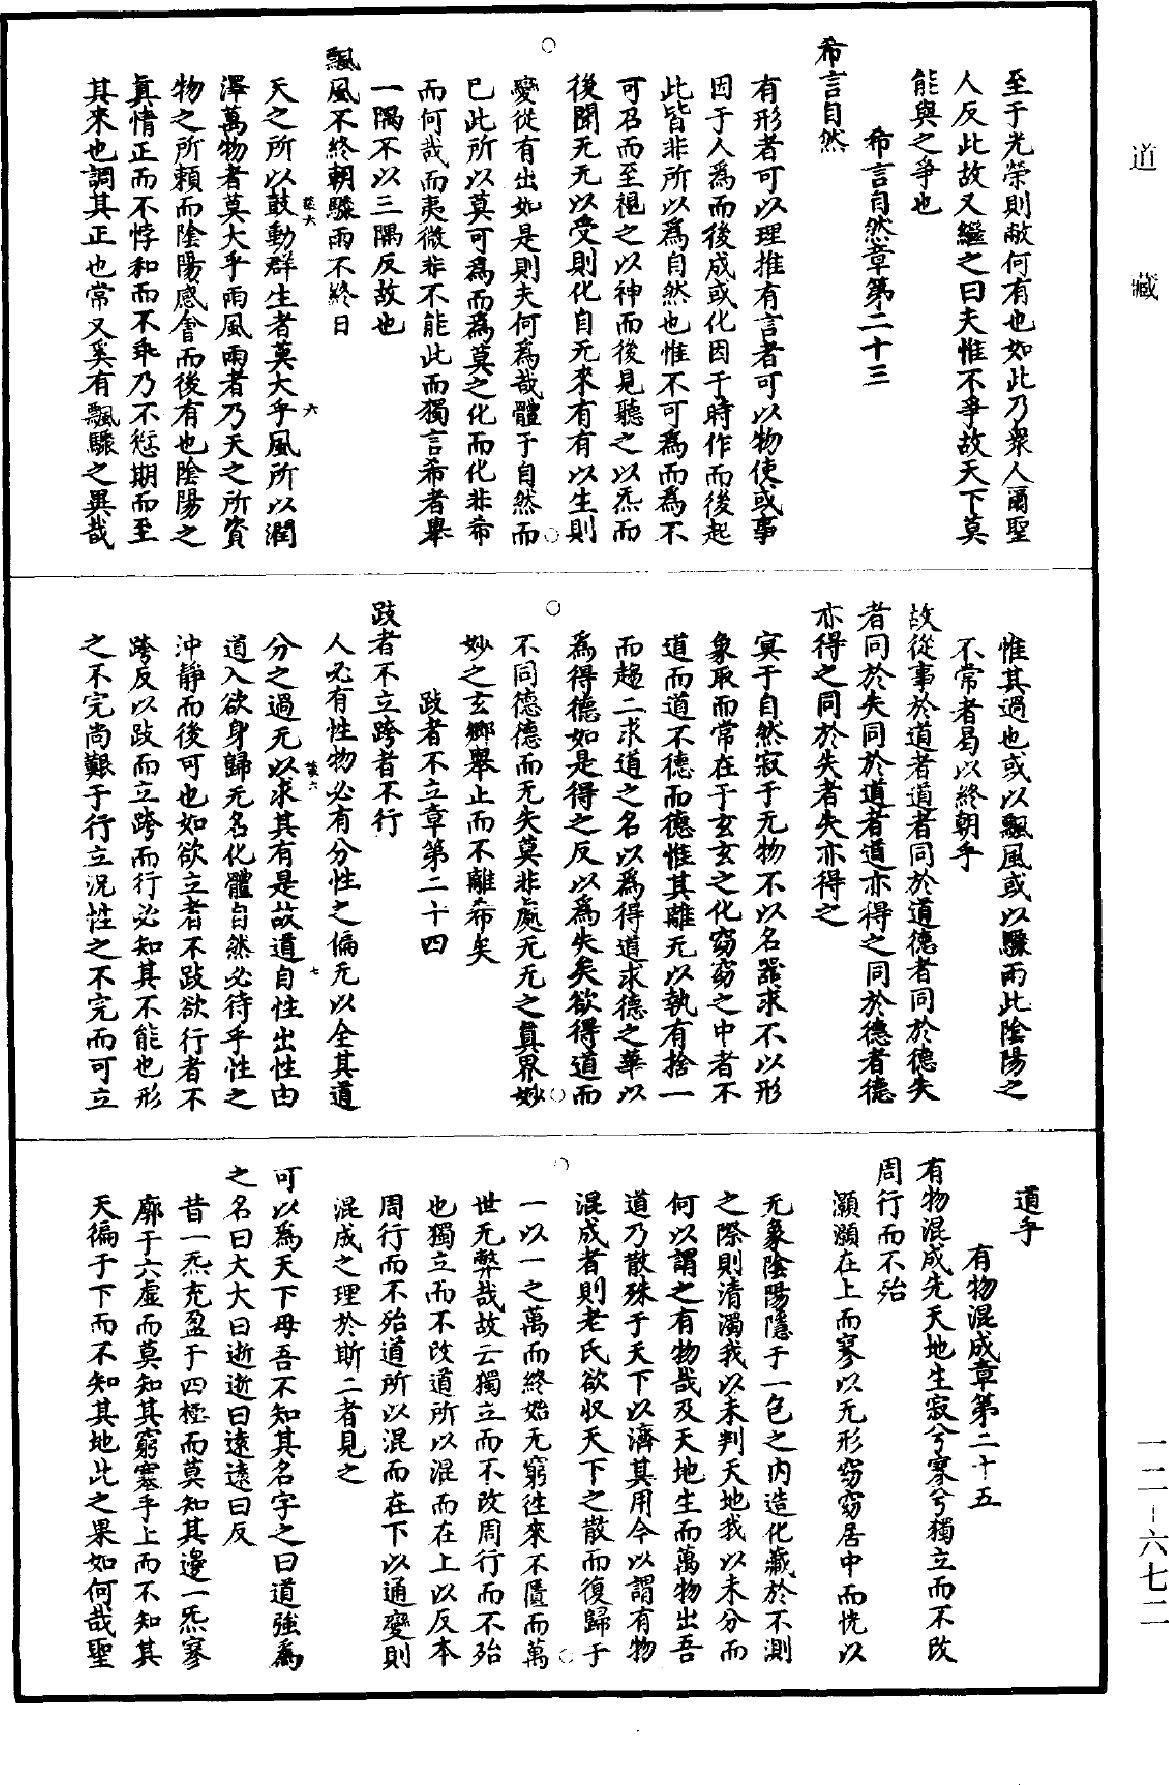 道藏
至于光榮則敵何有也如此乃衆人啇聖
人反此故又繼之曰夫惟不爭故天下莫
能與之爭也
希言自然章第二十三
希言自然
有形者可以理推有言者可以物使或事
因于人爲而後成或化因于時作而後起
此皆非所以爲自然也惟不可爲而爲不
可召而至視之以神而後見聽之以炁而
後聞无无以受則化自无來有有以生則
變從有出如是則夫何爲哉體于自然而
已此所以莫可爲而爲莫之化而化非希
而何哉而夷微非不能此而獨言希者舉
一隅不以三隅反故也
飄風不終朝驟雨不終日
天之所以鼓動群生者莫大乎風所以潤
澤萬物者莫大乎雨風雨者乃天之所資
物之所賴而陰陽感會而後有也陰陽之
真情正而不悖和而不乖乃不愆期而至
其來也調其正也常又奚有飄驟之異哉
惟其過也或以飄風或以驟雨此陰陽之
不常者曷以終朝乎
故從事於道者道者同於道德者同於德失
者同於失同於道者道亦得之同於德者德
亦得之同於失者失亦得之
寞于自然寂于无物不以名器求不以形
象取而常在于玄玄之化窈窈之中者不
道而道不德而德惟其離无以執有捨一
而趨二求道之名以爲得道求德之華以
爲得德如是得之反以爲失矣欲得道而
不同德德而无失莫非處无无之真界妙
妙之玄鄉舉止而不離希矣
跂者不立章第二十四
跂者不立跨者不行
人必有性物必有分性之偏无以全其道
分之過无以求其有是故道自性出性由
道入欲身歸无名化體自然必待乎性之
沖靜而後可也如欲立者不跂欲行者不
跨反以跂而立跨而行必知其不能也形
之不完尚艱于行立況性之不完而可立
道乎
有物混成章第二十五
有物混成先天地生寂兮寥兮獨立而不改
周行而不殆
灝灝在上而寥以无形窈窈居中而恍以
无象陰陽隱于一色之内造化藏於不測
之際則清濁我以未判天地我以未分而
何以謂之有物哉及天地生而萬物出吾
道乃散殊于天下以濟其用今以謂有物
混成者則老氏欲収天下之散而復歸于
一以一之萬而終始无窮徃來不匱而萬
世无弊哉故云獨立而不改周行而不殆
也獨立而不改道所以混而在上以反本
周行而不殆道所以混而在下以通變則
混成之理於斯二者見之
可以爲天下母吾不知其名字之曰道強爲
之名曰大大曰逝逝曰遠遠曰反
昔一炁充盈于四極而莫知其邊一炁寥
廓于六虛而莫知其窮蹇乎上而不知其
天徧于下而不知其地此之果如何哉聖
一二－六七二